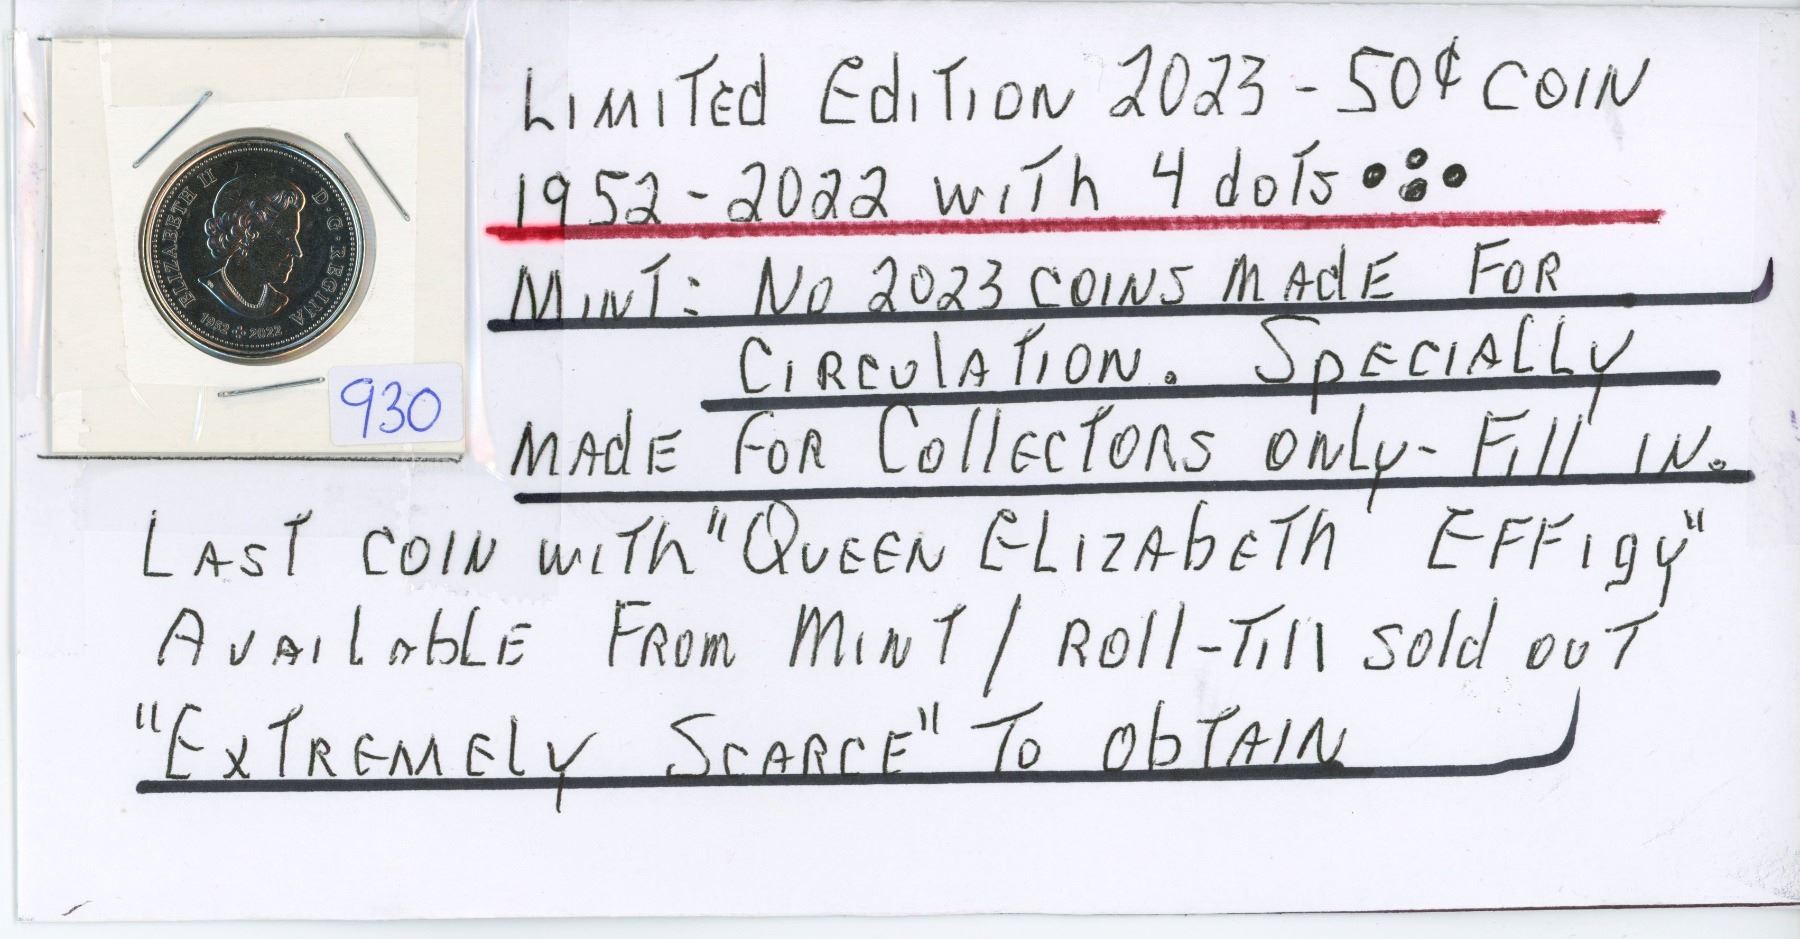 ELIZABETH II D·G·REGINA
1952 2022
930
Limited Edition 2023 - 50¢ COIN
1952 - 2022 with 4 dots
MINT: No 2023 COINS MADE FOR
CIRCULATION. SPECIALLY
MADE FOR COLLECTORS ONLY - FILL IN.
LAST COIN WITH "QUEEN ELIZABETH EFFIGY"
AVAILABLE FROM MINT / ROLL - TILL SOLD OUT
"EXTREMELY SCARCE" TO OBTAIN